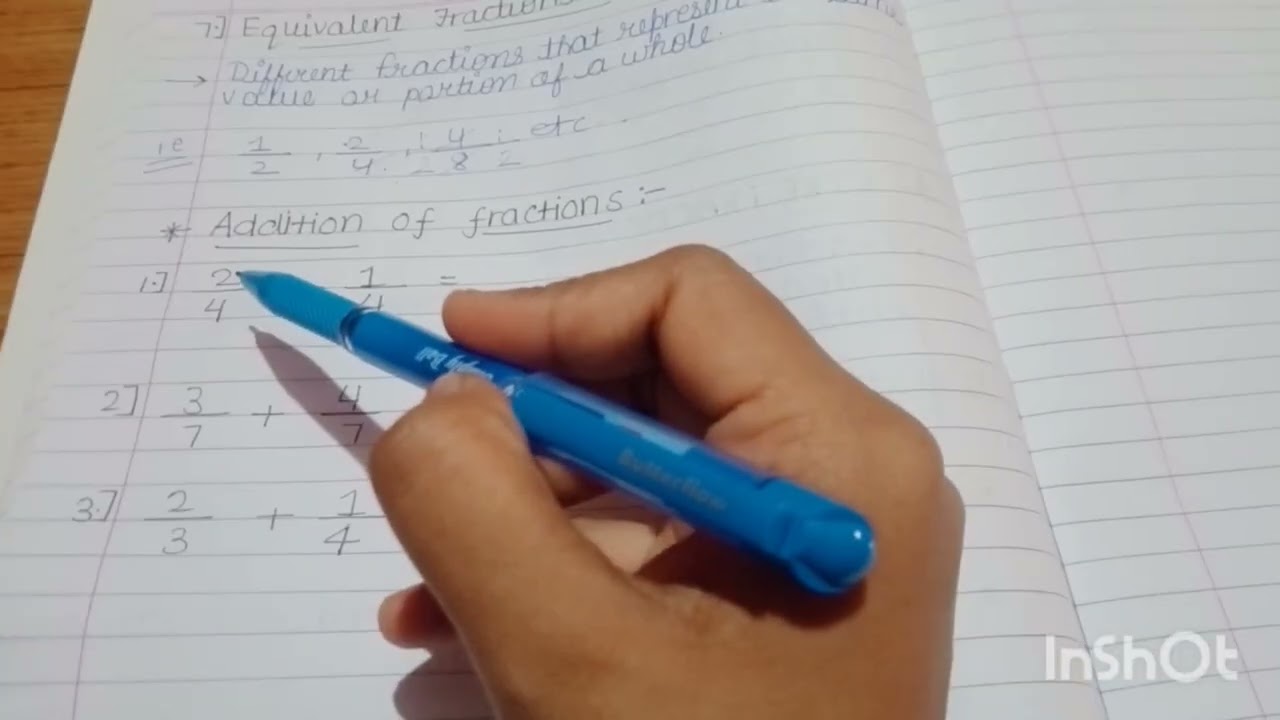 7.] Equivalent Fractions
→ Different fractions that represent
value or portion of a whole.
ie 1/2 , 2/4 , 4/8 , etc.
* Addition of fractions :-
1.] 2/4 1/4 =
2] 3/7 + 4/7
3.] 2/3 + 1/4
Butterflow
InShOt